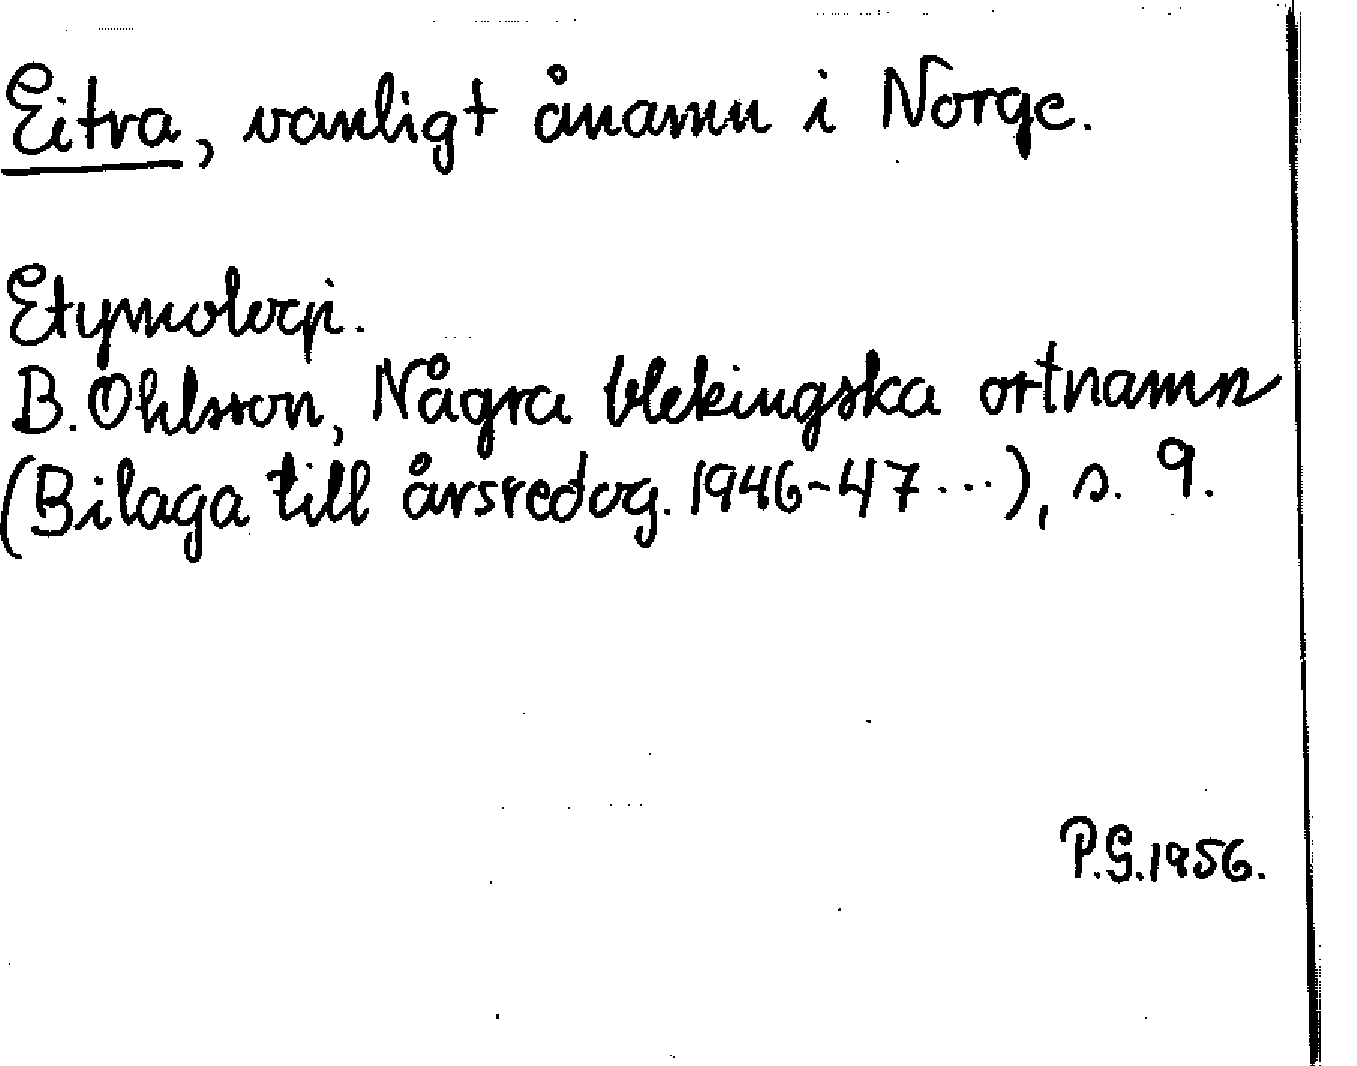 Eitra, vanligt ånamn i Norge.
Etymologi.
B. Ohlsson, Några blekingska ortnamn
(Bilaga till årsredog. 1946-47...), s. 9.
P.G. 1956.